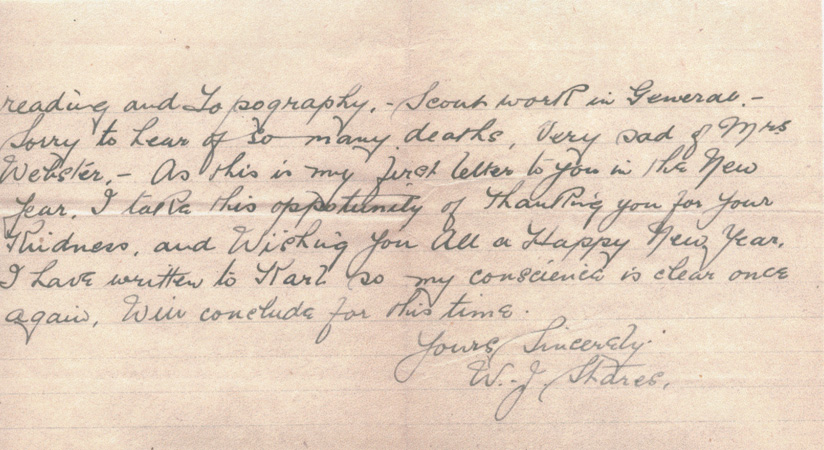 reading and Topography. - Scout work in General. -
Sorry to hear of so many deaths, Very sad of Mrs
Webster. - As this is my first letter to you in the New
Year. I take this oppotunity of thanking you for your
Kindness, and Wishing You All a Happy New Year.
I have written to Karl so my conscience is clear once
again, Will conclude for this time.
Yours Sincerely.
W. J. Stares.